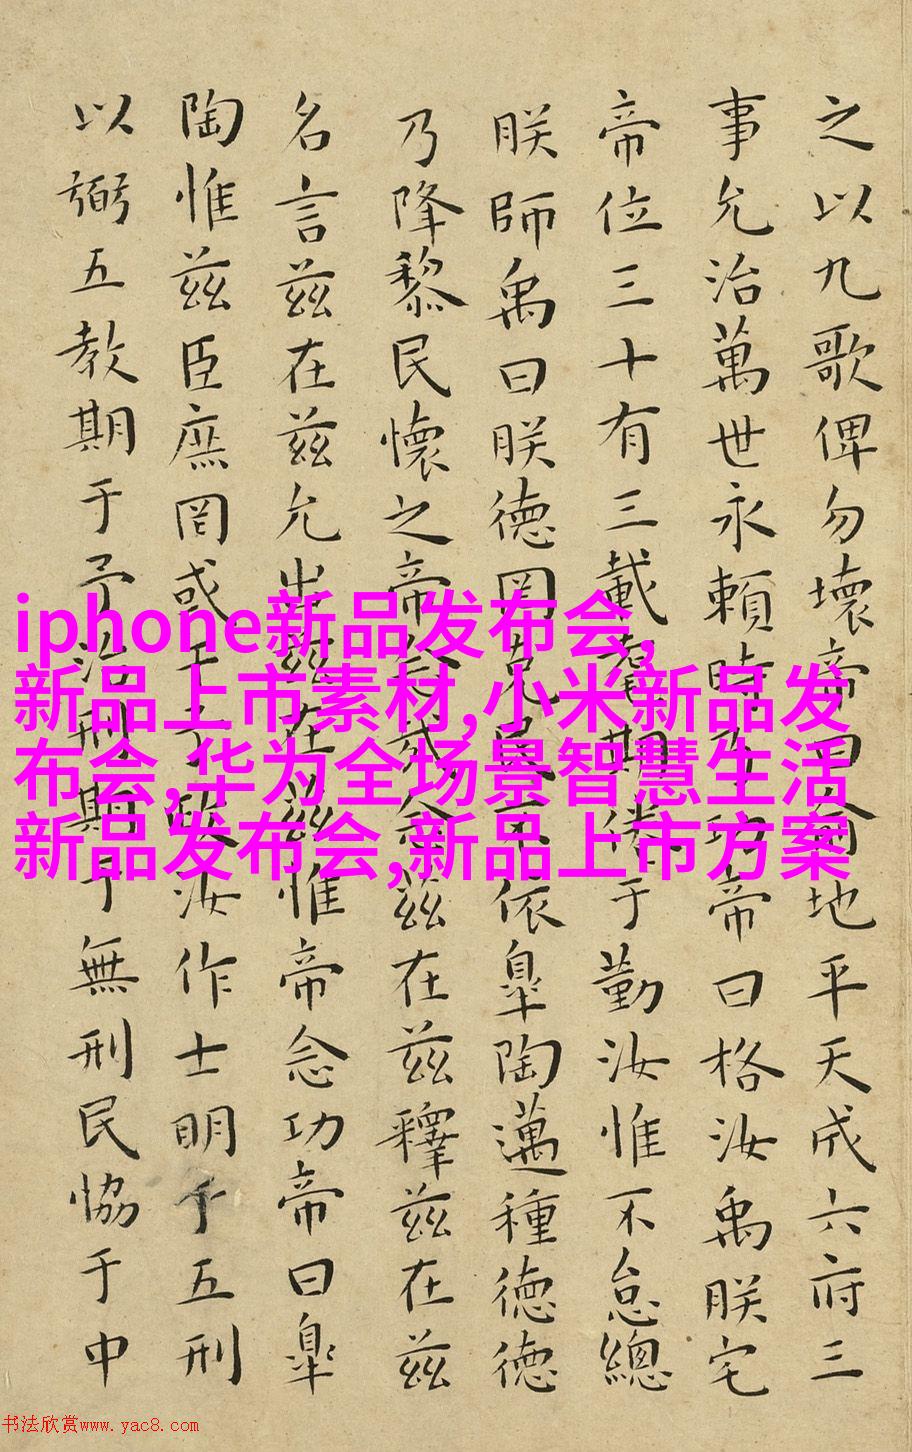 之以九歌俾勿壞帝曰俞地平天成六府三
事允治萬世永賴時乃功帝曰格汝禹朕宅
帝位三十有三載耄期倦于勤汝惟不怠總
朕師禹曰朕德罔克民不依皐陶邁種德德
乃降黎民懷之帝念哉念茲在茲釋茲在茲
名言茲在茲允出茲在茲惟帝念功帝曰皐
陶惟茲臣庶罔或干予政汝作士明于五刑
以弼五教期于予治刑期于無刑民協于中
iphone新品发布会,
新品上市素材,小米新品发
布会,华为全场景智慧生活
新品发布会,新品上市方案
书法欣赏www.yac8.com